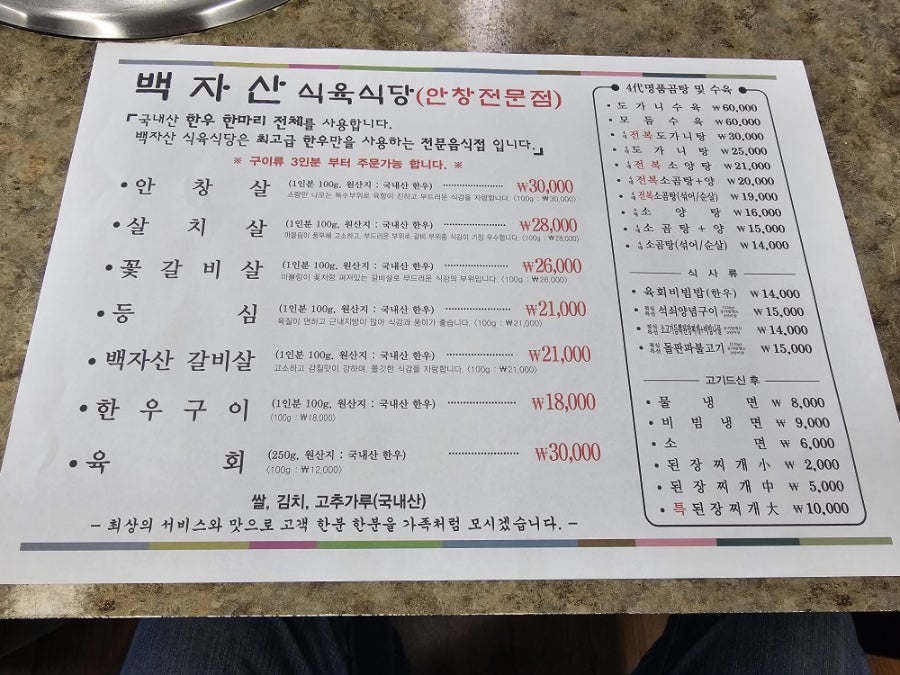 백자산 식육식당(안창전문점)
「국내산 한우 한마리 전체를 사용합니다.
백자산 식육식당은 최고급 한우만을 사용하는 전문음식점 입니다.」
※ 구이류 3인분 부터 주문가능 합니다. ※
• 안 창 살 (1인분 100g, 원산지 : 국내산 한우) ₩30,000
소량만 나오는 특수부위로 육향이 진하고 부드러운 식감을 자랑합니다. (100g : ₩30,000)
• 살 치 살 (1인분 100g, 원산지 : 국내산 한우) ₩28,000
마블링이 풍부해 고소하고, 부드러운 부위로 갈비 부위중 식감이 가장 우수합니다. (100g : ₩28,000)
• 꽃 갈 비 살 (1인분 100g, 원산지 : 국내산 한우) ₩26,000
마블링이 꽃처럼 퍼져있는 갈비살로 부드러운 식감의 부위입니다. (100g : ₩26,000)
• 등 심 (1인분 100g, 원산지 : 국내산 한우) ₩21,000
육질이 연하고 근내지방이 많아 식감과 풍미가 좋습니다. (100g : ₩21,000)
• 백자산 갈비살 (1인분 100g, 원산지 : 국내산 한우) ₩21,000
고소하고 감칠맛이 강하며, 쫄깃한 식감을 자랑합니다. (100g : ₩21,000)
• 한 우 구 이 (1인분 100g, 원산지 : 국내산 한우) ₩18,000
(100g : ₩18,000)
• 육 회 (250g, 원산지 : 국내산 한우) ₩30,000
(100g : ₩12,000)
쌀, 김치, 고추가루(국내산)
– 최상의 서비스와 맛으로 고객 한분 한분을 가족처럼 모시겠습니다. –
4代명품곰탕 및 수육
• 도가니수육 ₩60,000
• 모듬수육 ₩60,000
• 전복도가니탕 ₩30,000
• 도가니탕 ₩25,000
• 전복소양탕 ₩21,000
• 전복소곰탕+양 ₩20,000
• 전복소곰탕(섞어/순살) ₩19,000
• 소양탕 ₩16,000
• 소곰탕+양 ₩15,000
• 소곰탕(섞어/순살) ₩14,000
식 사 류
• 육회비빔밥(한우) ₩14,000
• 점심특선 석쇠양념구이 ₩15,000
• 점심특선 ₩14,000
• 점심특선 돌판파불고기 ₩15,000
고기드신 후
• 물 냉 면 ₩ 8,000
• 비 빔 냉 면 ₩ 9,000
• 소 면 ₩ 6,000
• 된장찌개小 ₩ 2,000
• 된장찌개中 ₩ 5,000
• 특된장찌개大 ₩10,000